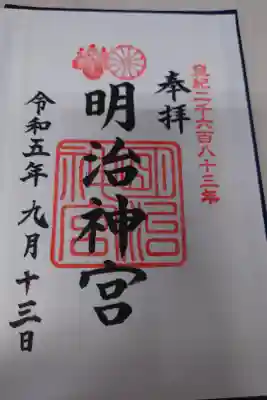 皇紀二千六百八十三年
奉拝
明治神宮
令和五年九月十三日
明治神宮